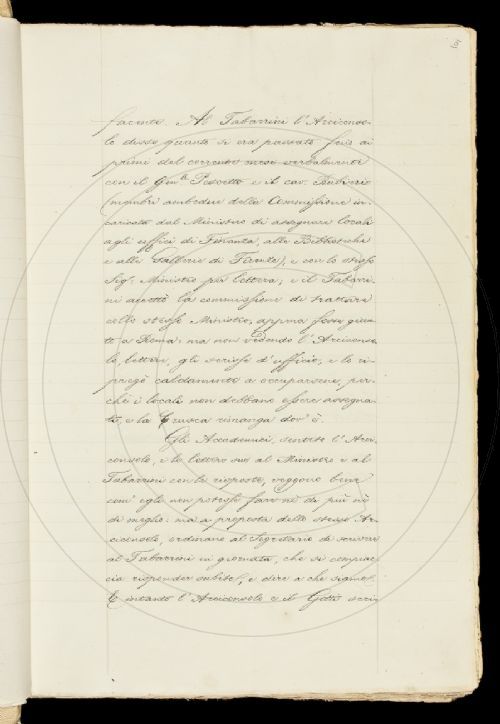 101
facente. Al Tabarrini l'Arciconso-
lo disse quanto si era passato fra i
primi del corrente mese verbalmente
con il Gen.e e il cav. Barbieri
(membri ambedue della Commissione in-
caricata dal Ministero di assegnare locali
agli uffici di Finanza, alle Biblioteche
e alle Gallerie di Firenze), e con lo stesso
Sig.r Ministro per lettera; e il Tabarri-
ni accettò la commissione di trattare
collo stesso Ministro, appena fosse giun-
to a Roma: ma non vedendo l'Arciconso-
lo lettere, gli scrisse d'ufficio, e lo ri-
pregò caldamente a occuparsene, per-
chè i locali non debbano essere assegna-
ti, e la Crusca rimanga dov'è.
Gli Accademici, sentito l'Arci-
consolo, e le lettere sue al Ministro e al
Tabarrini con le risposte, veggono bene
com'egli non potesse fare nè di più nè
di meglio: ma a proposta dello stesso Ar-
ciconsolo, ordinano al Segretario di scrivere
al Tabarrini in giornata, che si compiac-
cia risponder subito, e dire a che siamo.
E intanto l'Arciconsolo e il Gotti scri-